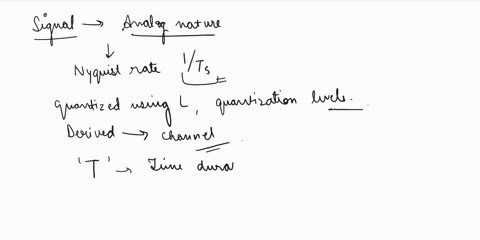 Signal → Analog nature
↓
Nyquist rate 1/Ts
quantized using L, quantization levels.
Derived → channel
'T' → Time dura